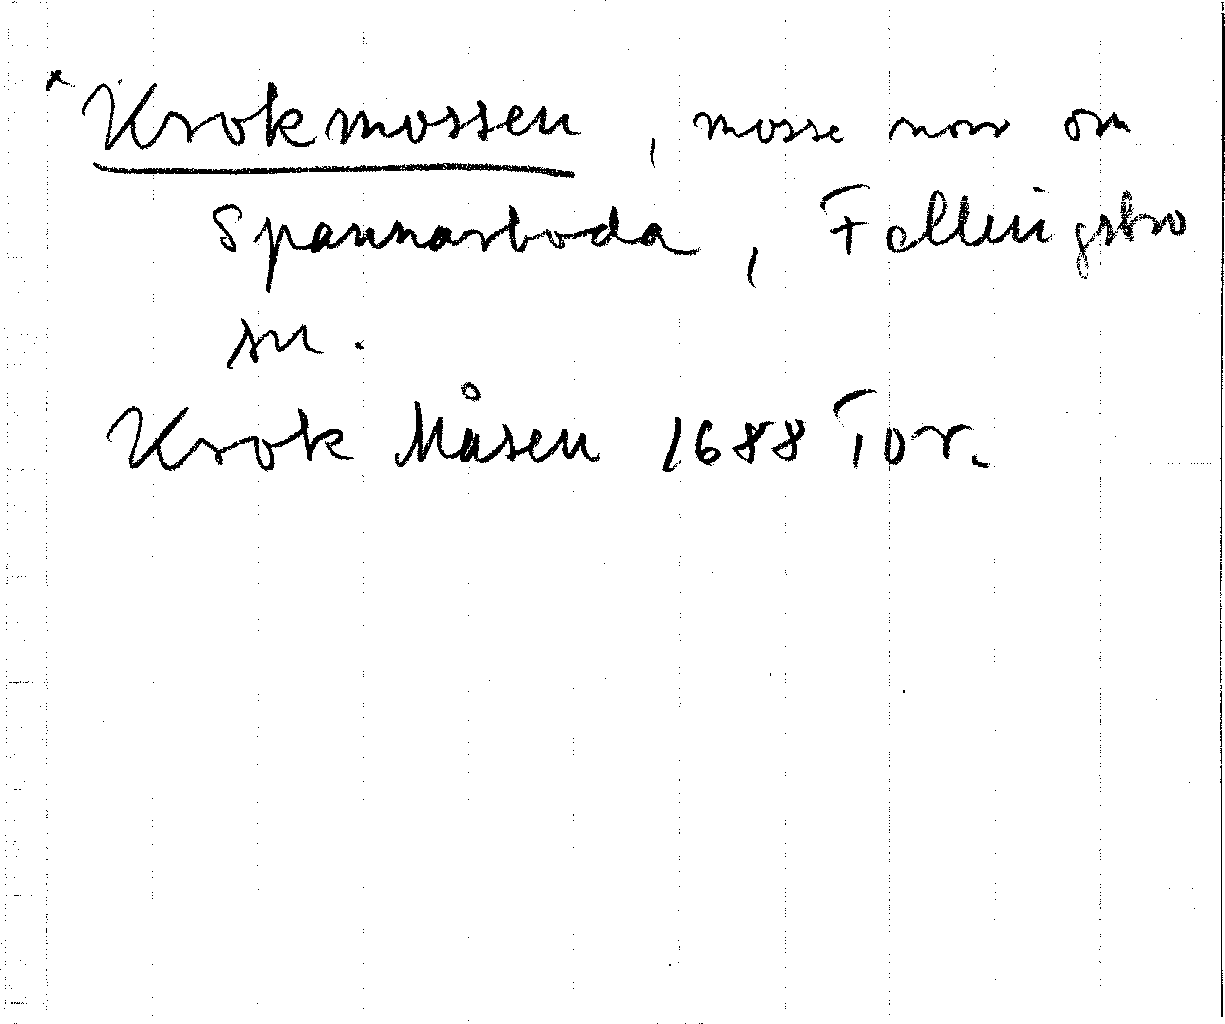 x Krokmossen, mosse norr om
Spannarboda, Fellingsbro
sn.
Krok Måsen 1688 Tor.